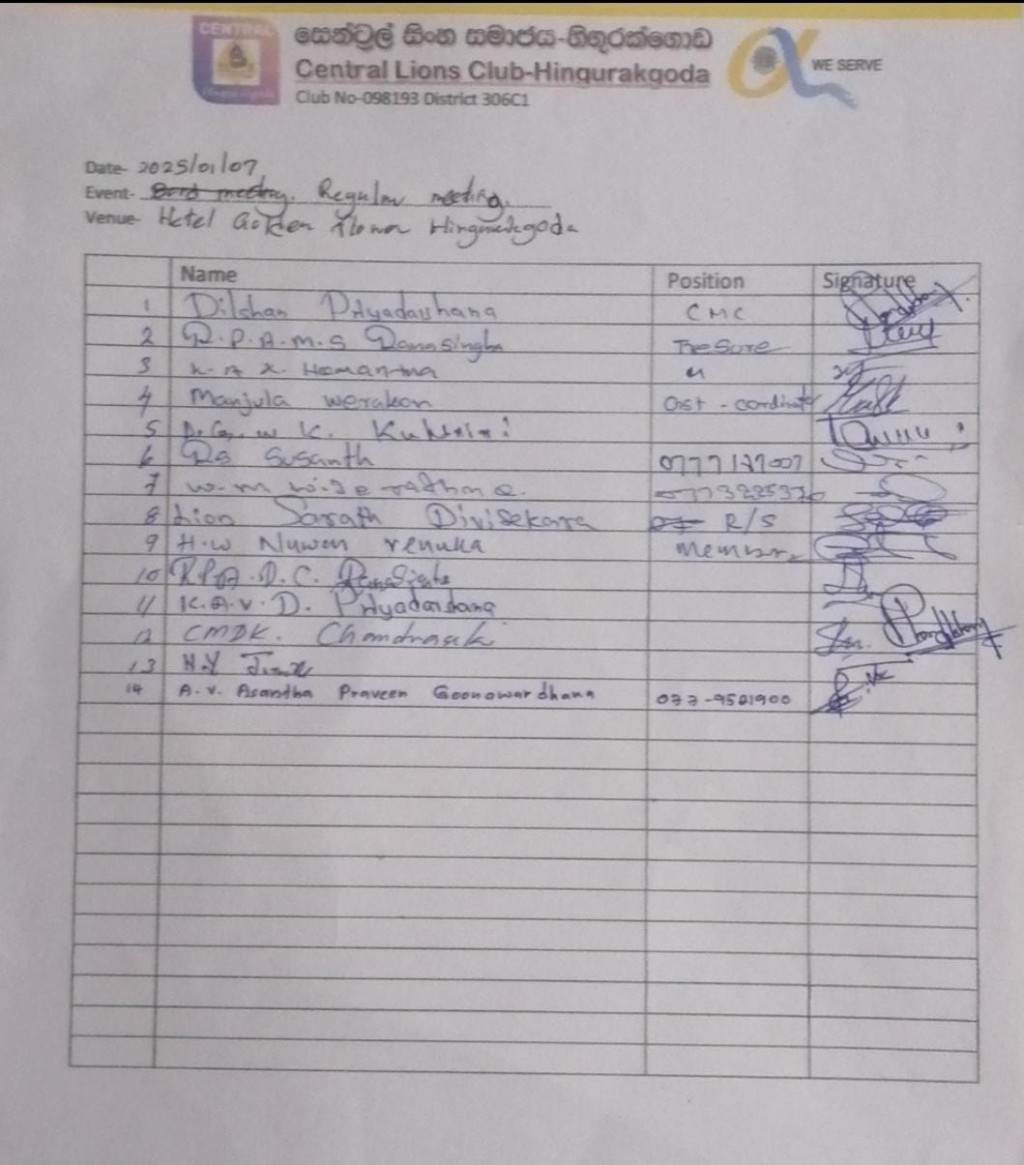 CENTRAL
සෙන්ට්‍රල් සිංහ සමාජය-හිඟුරක්ගොඩ
Central Lions Club-Hingurakgoda
Club No-098193 District 306C1
WE SERVE
Date- 2025/01/07
Event- Bord meeting. Regular meeting.
Venue- Hotel Golden Flower Hingurakgoda
Name Position Signature
1 Dilshan Priyadarshana CMC
2 R.P.A.M.S Ranasinghe Tresure
3 K. A X. Hemantha
4 Manjula Werakon Dist - cordinator
5 W K.
6 Rs Susanth 0777177007
7 W.M
8 Lion Sarath Divisekara R/S
9 H.W Nuwan renuka Member
10 R.P.A.D.C. Ranasinghe
11 K.A.V.D. Priyadarshana
12 CMDK. Chandrasek
13 H.Y
14 A.V. Asantha Praveen Goonawardhana 077-9501900